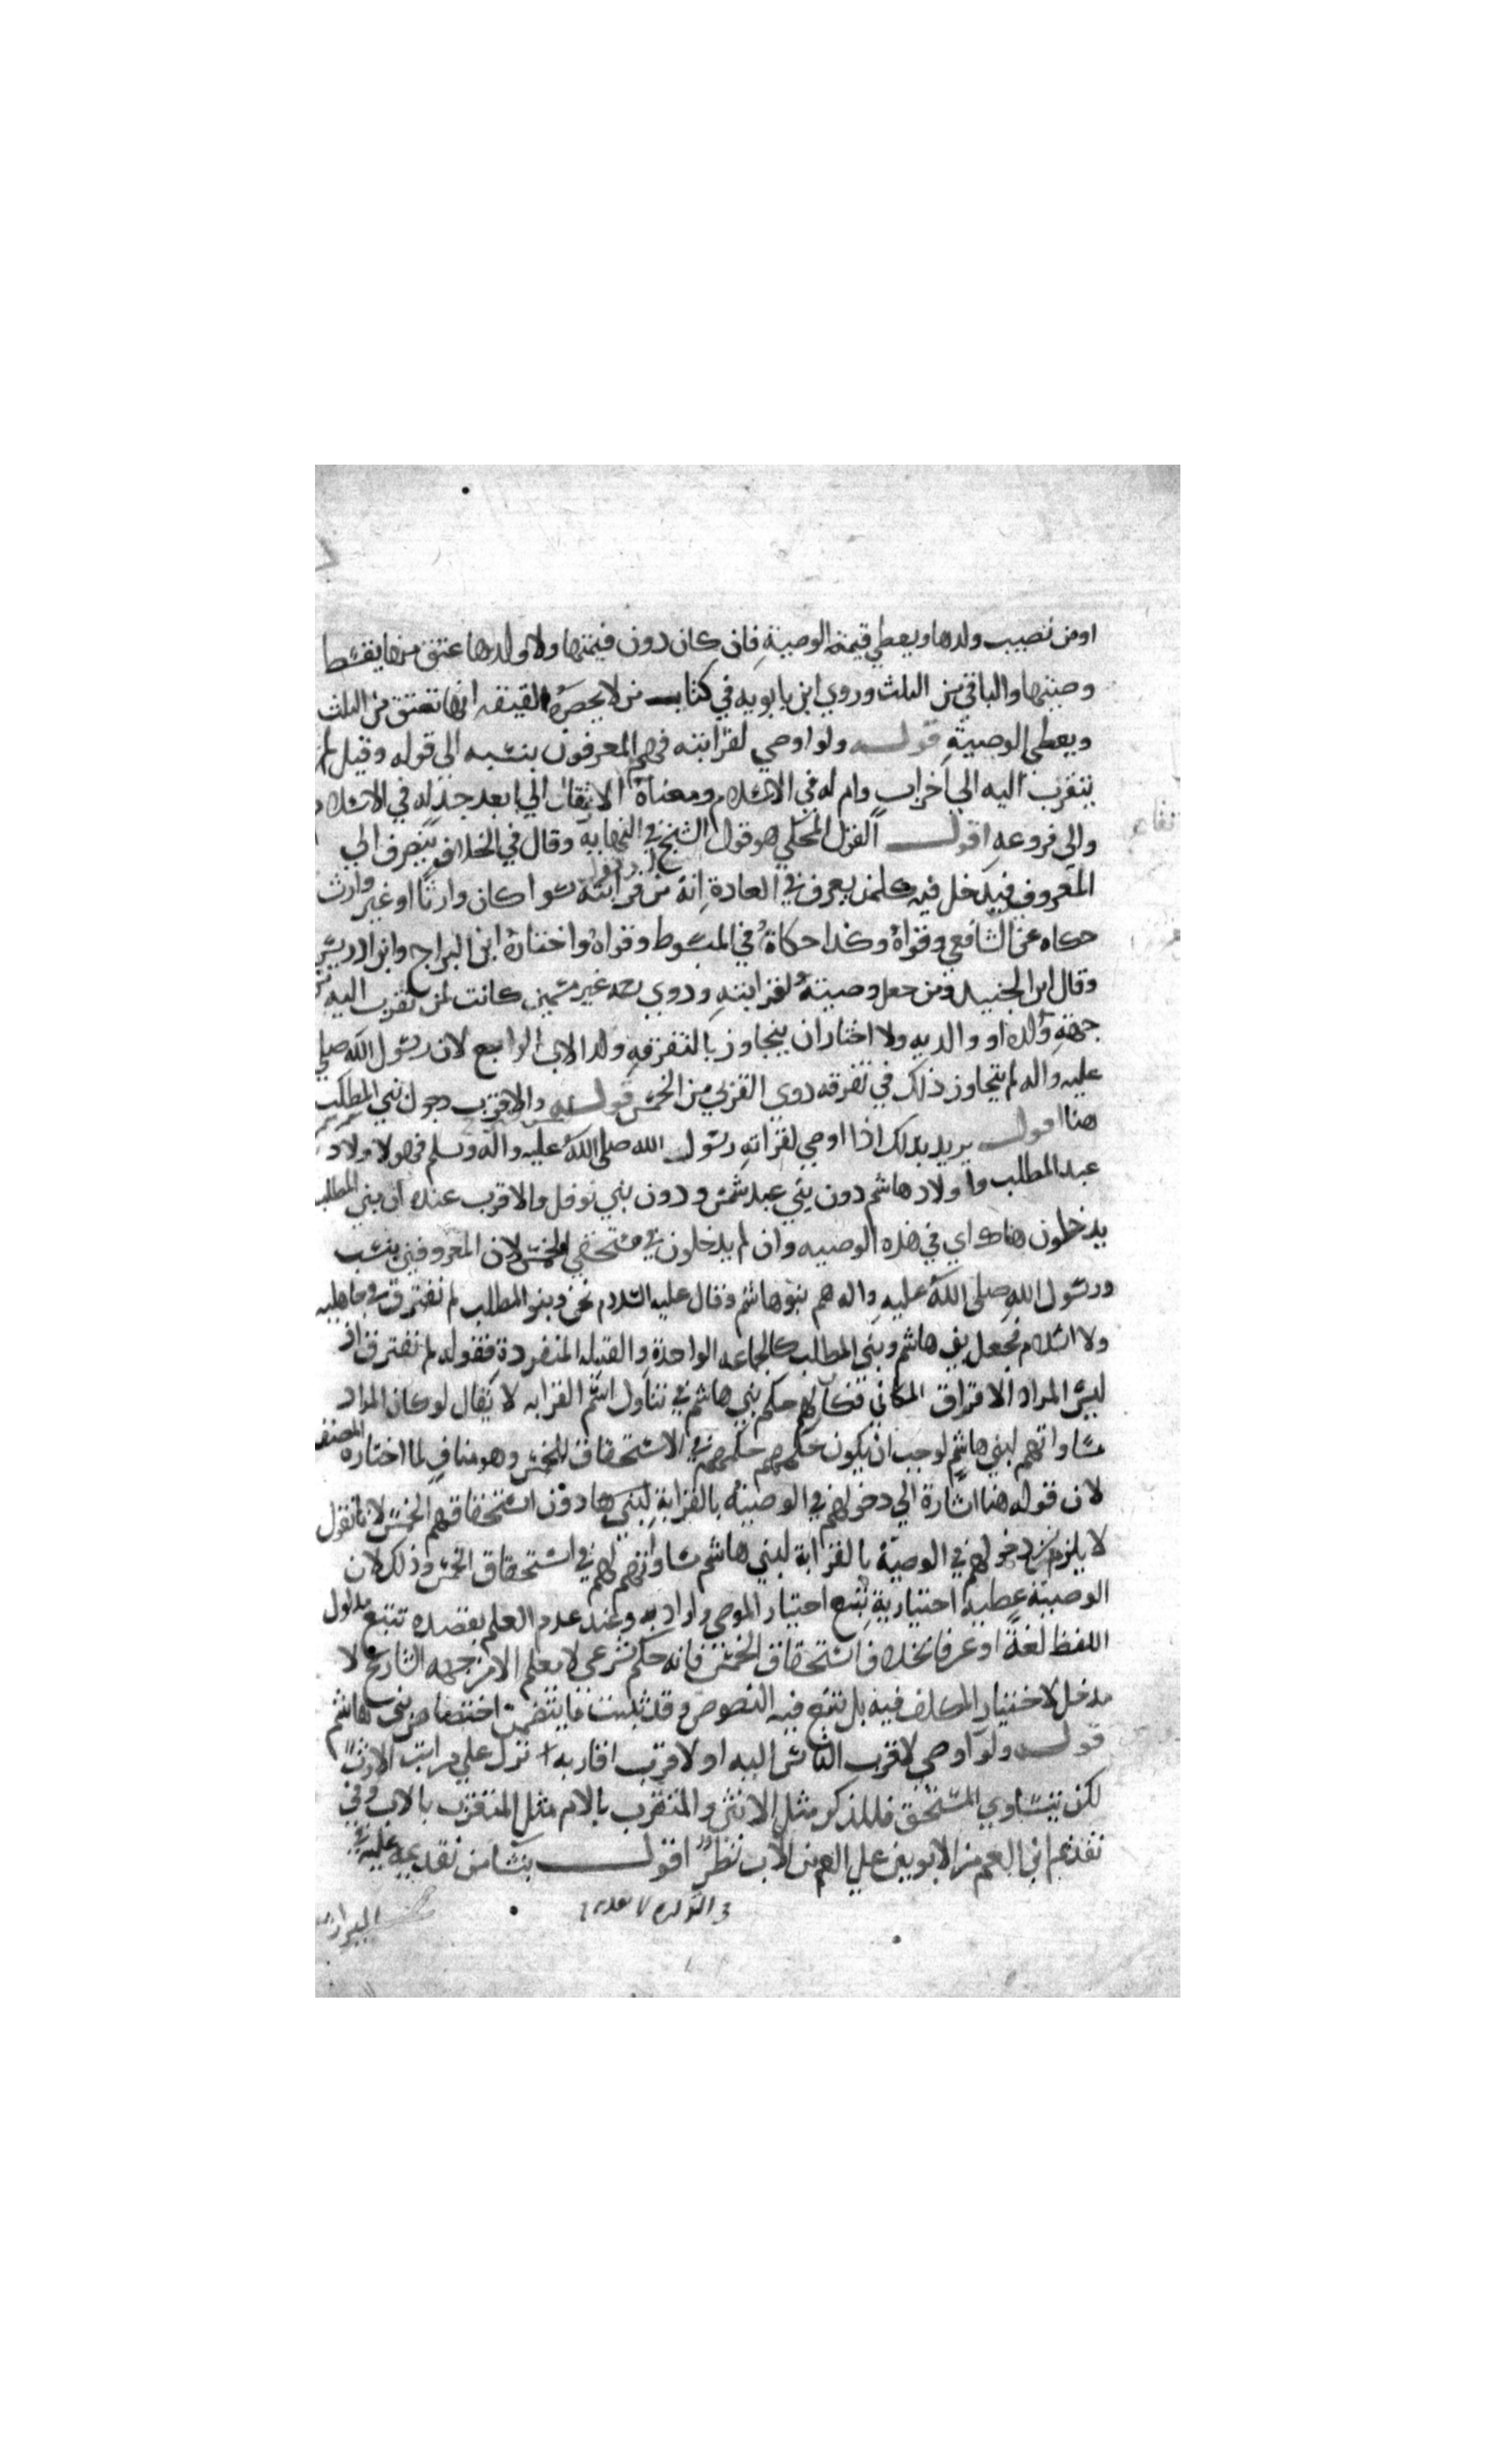 او من نصيب ولدها ويعطى قيمة الوصية فان كان دون قيمتها ولا ولد لها عتق منها بقسط
وصيتها والباقي من الثلث وروي ابن بابويه في كتاب من لا يحضره الفقيه انها تعتق من الثلث
ويعطى الوصية قوله ولو اوصي لقرابته فهم المعرفون بنسبه الى قوله وقيل لمن
يتقرب اليه الي اخراب وام له في الاسلام ومعناه الارتقاء الي ابعد جد له في الاسلام
والى فروعه اقول القول المحكي هو قول الشيخ في النهاية وقال في الخلاف ينصرف الي
المعروف فيدخل فيه كلمن يعرف في العادة انه من قرابته سوا كان وارثا او غير وارث
حكاه عن الشافعي وقواه وكذا حكاه في المبسوط وقواه واختاره ابن البراج وابن ادريس
وقال ابن الجنيد ومن جعل وصيته لقرابته وذوي رحمه غير مسمين كانت لمن تقرب اليه من
جهة ولده او والديه ولا اختار ان يتجاوز بالتفرقه ولد الاب الرابع لان رسول الله صلى
عليه واله لم يتجاوز ذلك في تفرقه ذوي القربي من الخمس قوله والاقرب دخول بني المطلب
هنا اقول يريد بذلك اذا اوصي لقرابة رسول الله صلى الله عليه واله وسلم فهو لاولاد
عبد المطلب واولاد هاشم دون بني عبد شمس ودون بني نوفل والاقرب عنده ان بني المطلب
يدخلون هناك اي في هذه الوصيه وان لم يدخلون في مستحقي الخمس لان المعروفين بنسب
ورسول الله صلى الله عليه واله هم بنو هاشم وقال عليه السلام نحن وبنو المطلب لم نفترق في جاهليه
ولا اسلام فجعل بني هاشم وبني المطلب كالجماعه الواحدة والقبيله المنفردة فقوله لم نفترق اذ
ليس المراد الافتراق المكاني فكان لهم حكم بني هاشم في تناول اسم القرابه لا يقال لو كان المراد
مساواتهم لبني هاشم لوجب ان يكون حكمهم حكمهم في الاستحقاق للخمس وهو مناف لما اختاره المصنف
لان قوله هنا اشارة الي دخولهم في الوصية بالقرابة لبني هاشم دون استحقاقهم الخمس لانا نقول
لا يلزم من دخولهم في الوصية بالقرابة لبني هاشم مساواتهم لهم في استحقاق الخمس وذلك لان
الوصية عطية اختيارية تتبع اختيار الموصي وارادته وعند عدم العلم بقصده تتبع مدلول
اللفظ لغة او عرفا بخلاف استحقاق الخمس فانه حكم شرعي لا يعلم الا من جهه الشارع لا
مدخل لاختيار المكلف فيه بل نتبع فيه النصوص وقد ثبت ما يتضمن اختصاص بني هاشم
قوله ولو اوصي لاقرب الناس اليه او لاقرب اقاربه نزل علي مراتب الارث
لكن يتساوي المستحق فللذكر مثل الانثي والمتقرب بالام مثل المتقرب بالاب وفي
تقديم ابن العم من الابوين علي العم من الاب نظر اقول ينشا من تقديمه عليه في
الميراث